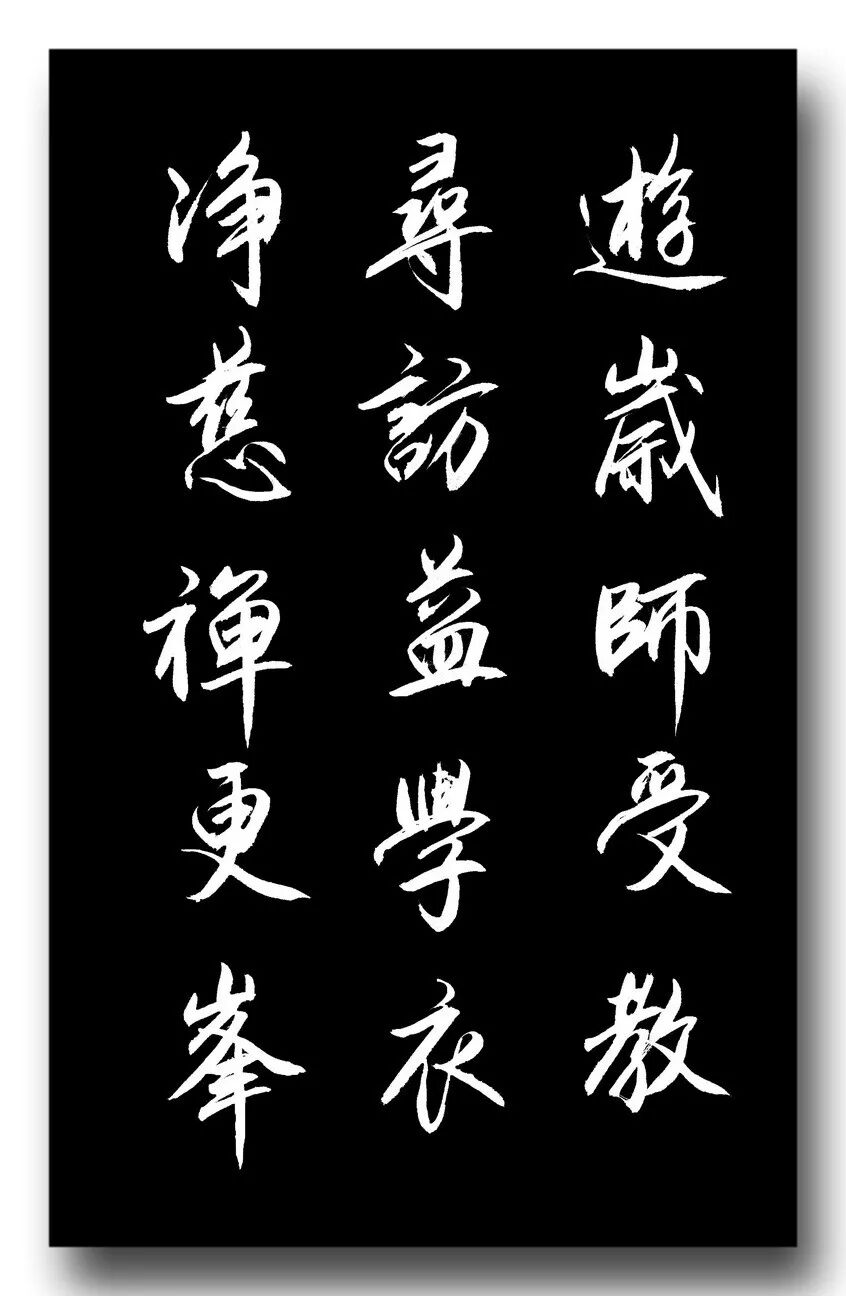 遊歲師受教
尋訪益學衣
净慈禪更峯